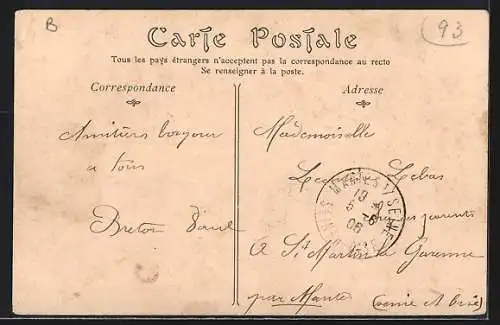 B
93
Carte Postale
Tous les pays étrangers n'acceptent pas la correspondance au recto
Se renseigner à la poste.
Correspondance
Adresse
Amitiers bonjour
a tous
Breton
Mademoiselle
Lebas
ses parents
A St Martin la Garenne
par Mantes (Seine et Oise)